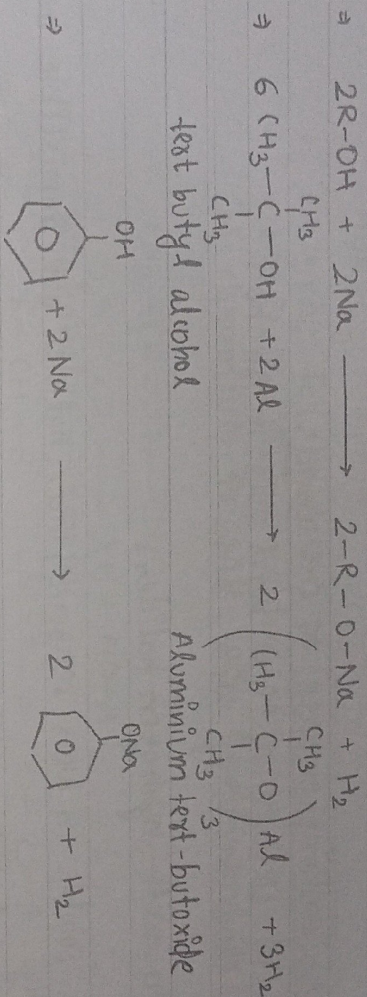 ⇒ 2R-OH + 2Na ⟶ 2-R-O-Na + H₂
CH₃ CH₃
⇒ 6 CH₃-C-OH + 2Al ⟶ 2 (CH₃-C-O)₃ Al + 3H₂
CH₃ CH₃
tert butyl alcohol Aluminium tert-butoxide
OH ONa
⇒ + 2Na ⟶ 2 + H₂